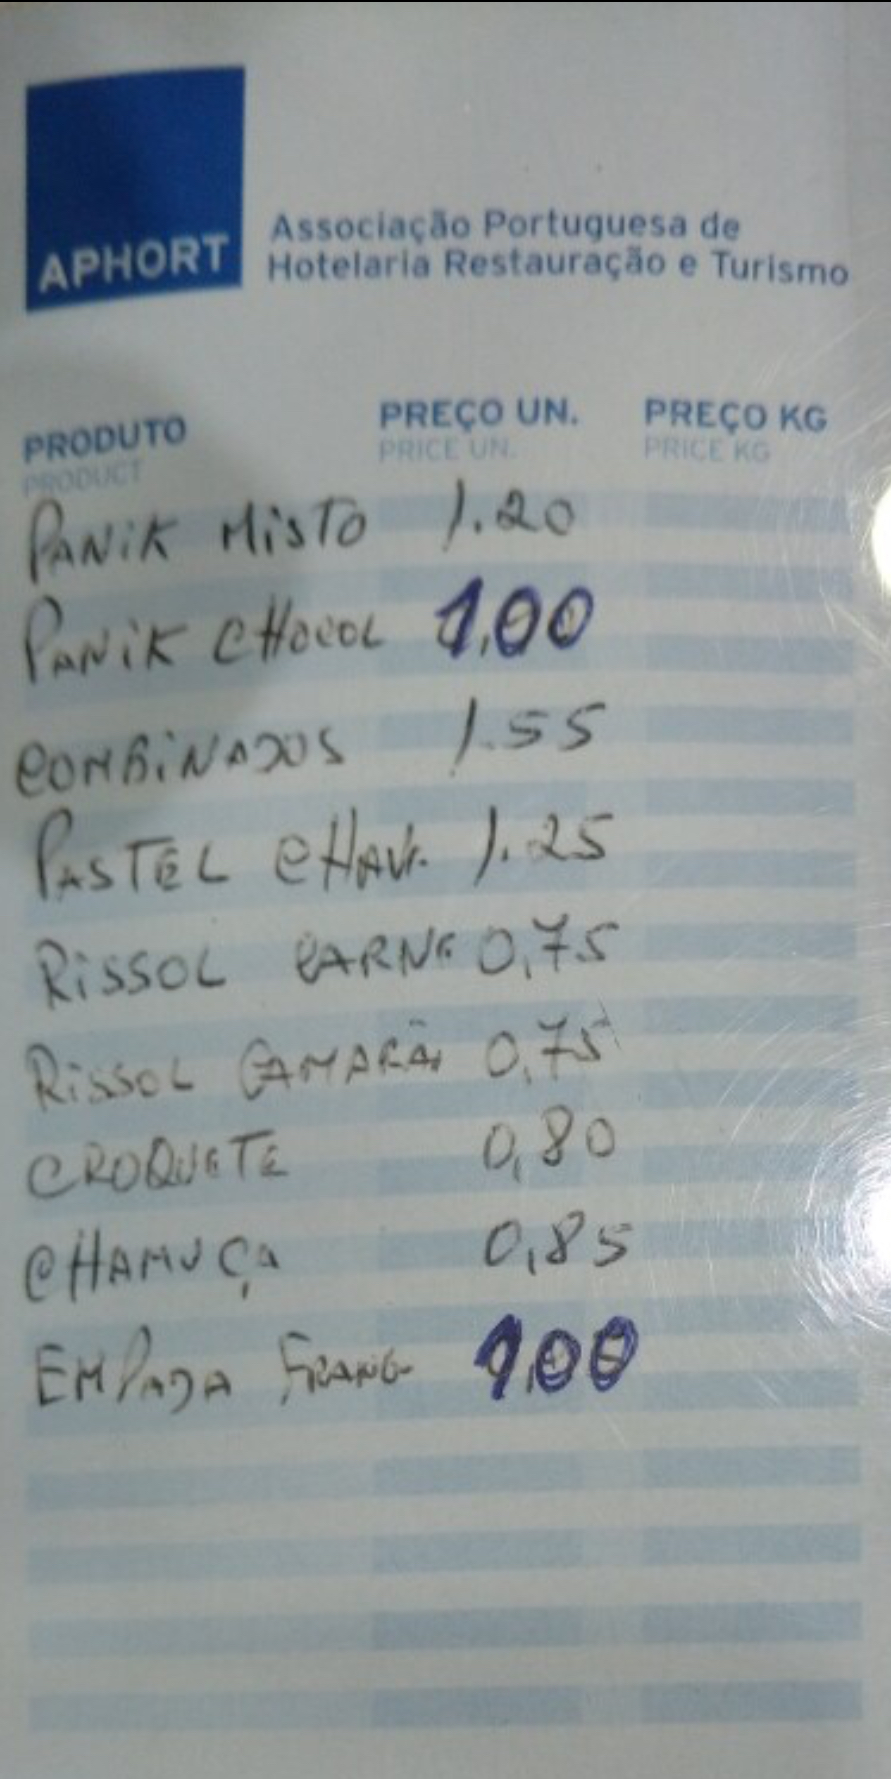 APHORT
Associação Portuguesa de
Hotelaria Restauração e Turismo
PRODUTO PREÇO UN. PREÇO KG
PRODUCT PRICE UN. PRICE KG
PANiK MiSTO 1.20
PANiK CHOCOL 1,00
COMBiNADOS 1.55
PASTEL CHAV. 1.25
RiSSOL CARNE 0,75
RiSSOL CAMARÃO 0,75
CROQUETE 0,80
CHAMUÇA 0,85
EMPADA FRANG 1,00